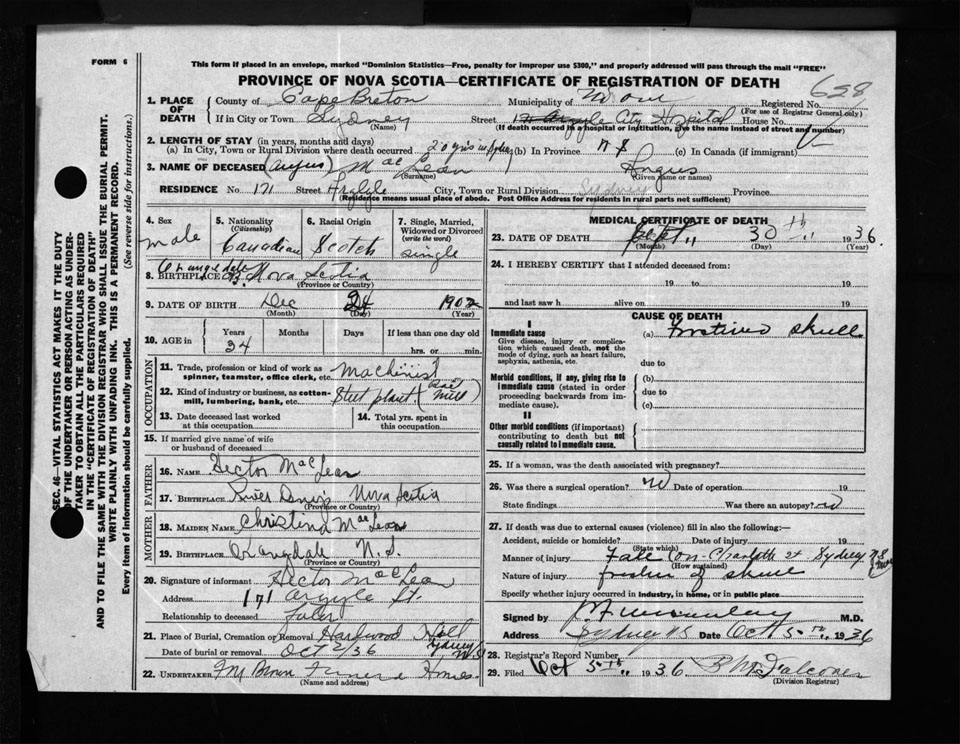 FORM 6
This form if placed in an envelope, marked "Dominion Statistics—Free, penalty for improper use $300," and properly addressed will pass through the mail "FREE"
PROVINCE OF NOVA SCOTIA—CERTIFICATE OF REGISTRATION OF DEATH
628
1. PLACE OF DEATH
County of Cape Breton Municipality of Registered No.
(For use of Registrar General only)
If in City or Town Sydney Street Argyle City Hospital House No.
(Name) (If death occurred in a hospital or institution, give the name instead of street and number)
2. LENGTH OF STAY (in years, months and days)
(a) In City, Town or Rural Division where death occurred 20 yrs in Sydney (b) In Province N S (c) In Canada (if immigrant)
3. NAME OF DECEASED (Angus) MacLean Angus
(Surname) (Given name or names)
RESIDENCE No. 171 Street Argyle City, Town or Rural Division Sydney Province
(Residence means usual place of abode. Post Office Address for residents in rural parts not sufficient)
4. Sex male
5. Nationality (Citizenship) Canadian
6. Racial Origin Scotch
7. Single, Married, Widowed or Divorced (write the word) single
8. BIRTHPLACE Orangedale C.B. Nova Scotia
(Province or Country)
9. DATE OF BIRTH Dec 24 1902
(Month) (Day) (Year)
10. AGE in Years Months Days If less than one day old
34 hrs. or min.
OCCUPATION
11. Trade, profession or kind of work as spinner, teamster, office clerk, etc. Machinist
12. Kind of industry or business, as cotton-mill, lumbering, bank, etc. Steel plant ( mill)
13. Date deceased last worked at this occupation
14. Total yrs. spent in this occupation
15. If married give name of wife or husband of deceased
FATHER
16. NAME Hector MacLean
17. BIRTHPLACE River Denys Nova Scotia
(Province or Country)
MOTHER
18. MAIDEN NAME Christina MacLean
19. BIRTHPLACE Orangedale N.S.
(Province or Country)
20. Signature of informant Hector MacLean
Address 171 Argyle St.
Relationship to deceased Father
21. Place of Burial, Cremation or Removal Hardwood Hill Sydney N.S.
Date of burial or removal Oct 2/36
22. UNDERTAKER Funeral Home
(Name and address)
MEDICAL CERTIFICATE OF DEATH
23. DATE OF DEATH Sept 30th 1936.
(Month) (Day) (Year)
24. I HEREBY CERTIFY that I attended deceased from:
19 to 19
and last saw h alive on 19
CAUSE OF DEATH
I
Immediate cause (a) Fractured skull
Give disease, injury or complication which caused death, not the mode of dying, such as heart failure, asphyxia, asthenia, etc.
due to
Morbid conditions, if any, giving rise to immediate cause (stated in order proceeding backwards from immediate cause).
(b)
due to
(c)
II
Other morbid conditions (if important) contributing to death but not causally related to immediate cause.
25. If a woman, was the death associated with pregnancy?
26. Was there a surgical operation? no Date of operation 19
State findings Was there an autopsy? no
27. If death was due to external causes (violence) fill in also the following:—
Accident, suicide or homicide? Date of injury 19
(State which)
Manner of injury Fall (on Charlotte St Sydney N S
(How sustained)
Nature of injury fracture of skull
Specify whether injury occurred in industry, in home, or in public place
Signed by M.D.
Address Sydney N S Date Oct 5th 1936
28. Registrar's Record Number
29. Filed Oct 5th 1936
(Division Registrar)
SEC. 46—VITAL STATISTICS ACT MAKES IT THE DUTY OF THE UNDERTAKER OR PERSON ACTING AS UNDERTAKER TO OBTAIN ALL THE PARTICULARS REQUIRED IN THE "CERTIFICATE OF REGISTRATION OF DEATH" AND TO FILE THE SAME WITH THE DIVISION REGISTRAR WHO SHALL ISSUE THE BURIAL PERMIT.
WRITE PLAINLY WITH UNFADING INK. THIS IS A PERMANENT RECORD.
Every item of Information should be carefully supplied. (See reverse side for instructions.)